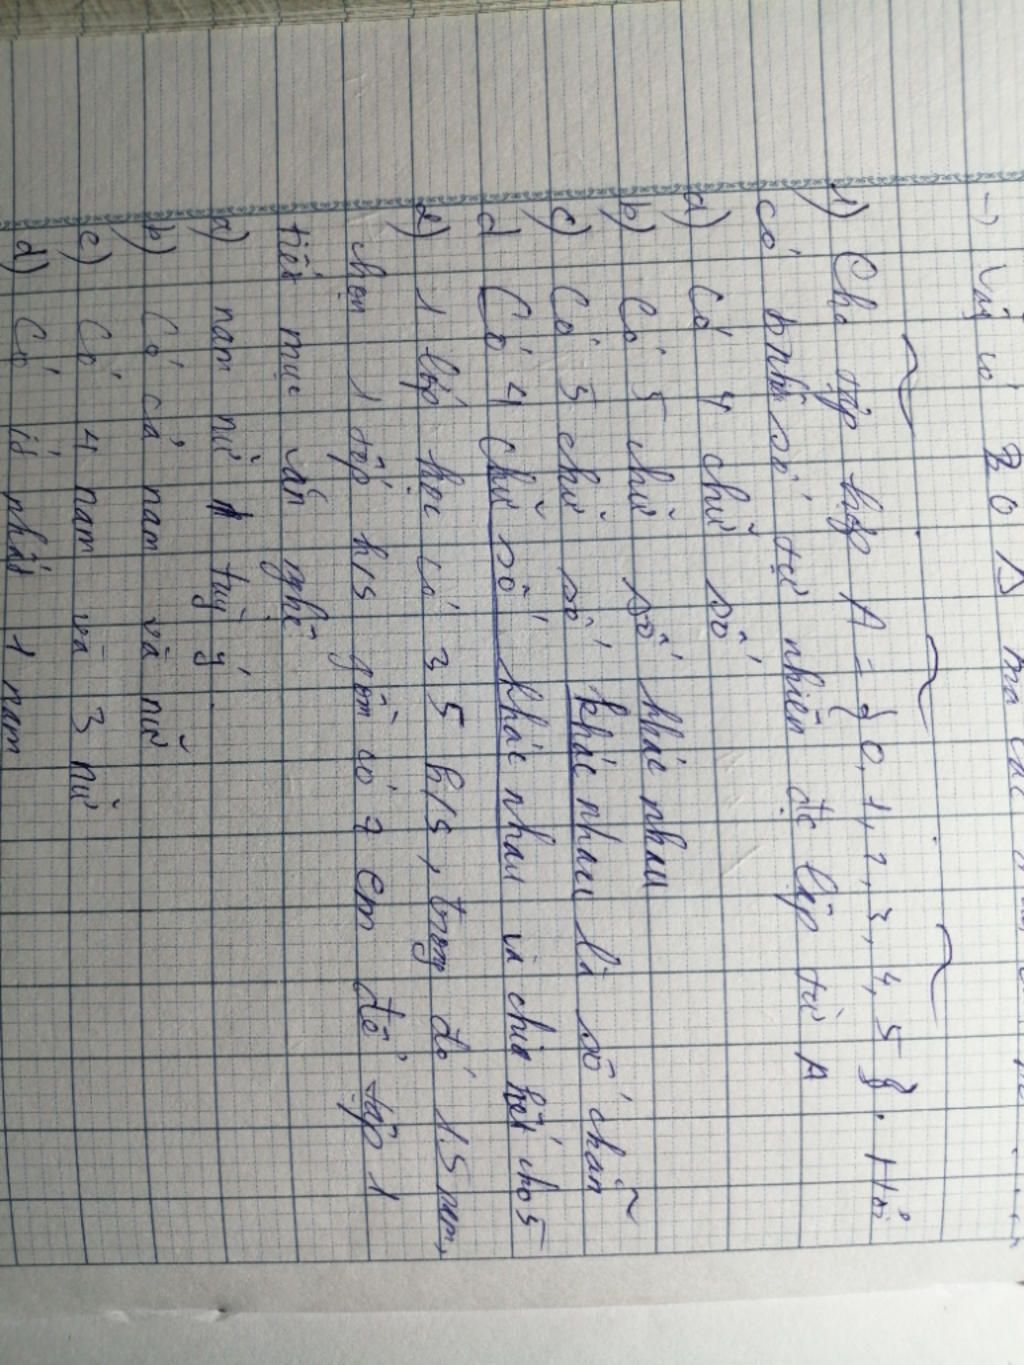 → Vậy có BOA mà các
1) Cho tập hợp A = { 0, 1, 2, 3, 4, 5 }. Hỏi
có bnhiêu số tự nhiên đc lập từ A
a) Có 4 chữ số
b) Có 5 chữ số khác nhau
c) Có 3 chữ số khác nhau là số chẵn
d Có 4 chữ số khác nhau và chia hết cho 5
2) 1 lớp học có 35 h/s, trong đó 15 nam,
chọn 1 tốp h/s gồm có 7 em để tập 1
tiết mục văn nghệ
a) nam nữ tùy ý
b) Có cả nam và nữ
c) Có 4 nam và 3 nữ
d) Có ít nhất 1 nam